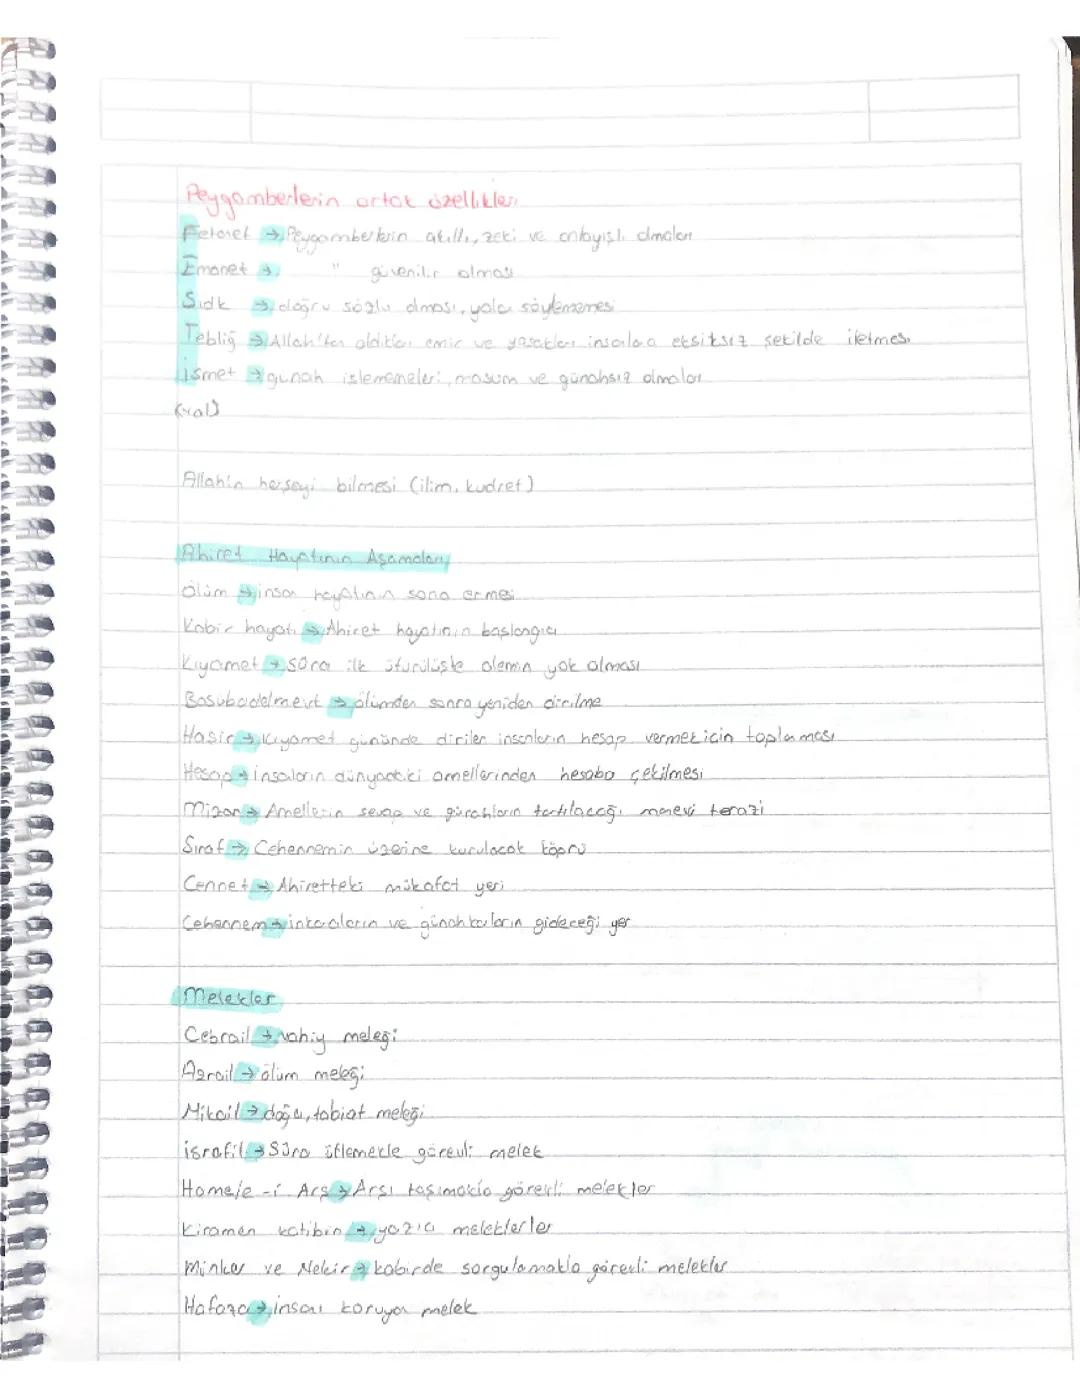 Peygamberlerin ortak özellikleri
Fetanet → Peygamberlerin akıllı, zeki ve anlayışlı olmaları
Emanet → " güvenilir olması
Sıdk → doğru sözlü olması, yalan söylememesi
Tebliğ → Allah'tan aldıkları emir ve yasakları insanlara eksiksiz şekilde iletmesi
ismet → günah işlememeleri, masum ve günahsız olmaları
Allah'ın herşeyi bilmesi (ilim, kudret)
Ahiret Hayatının Aşamaları
Ölüm → insan hayatının sona ermesi
Kabir hayatı → Ahiret hayatının başlangıcı
Kıyamet → Sûra ilk üfürülüşte alemin yok olması
Basübadelmevt → ölümden sonra yeniden dirilme
Haşir → Kıyamet gününde dirilen insanların hesap vermek için toplanması
Hesap → insanların dünyadaki amellerinden hesaba çekilmesi
Mizan → Amellerin sevap ve günahların tartılacağı manevi terazi
Sırat → Cehennemin üzerine kurulacak köprü
Cennet → Ahiretteki mükafat yeri
Cehennem → inkarcıların ve günahkarların gideceği yer
Melekler
Cebrail → vahiy meleği
Azrail → ölüm meleği
Mikail → doğa, tabiat meleği
israfil → Sûra üflemekle görevli melek
Hamele-i Arş → Arşı taşımakla görevli melekler
Kiramen katibin → yazıcı meleklerler
Minker ve Nekir → kabirde sorgulamakla görevli melekler
Hafaza → insanı koruyan melek